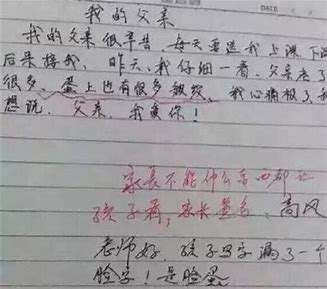 我的父亲
我的父亲很辛苦,每天要送我上课,下课
后来接我,昨天,我仔细一看,父亲老了
很多,蛋上也有很多皱纹,我心痛极了,我
想说,父亲,我爱你!
家长不能什么字都让
孩子看,家长签名,高风
老师好,孩子写字漏了一个
脸字!是脸蛋